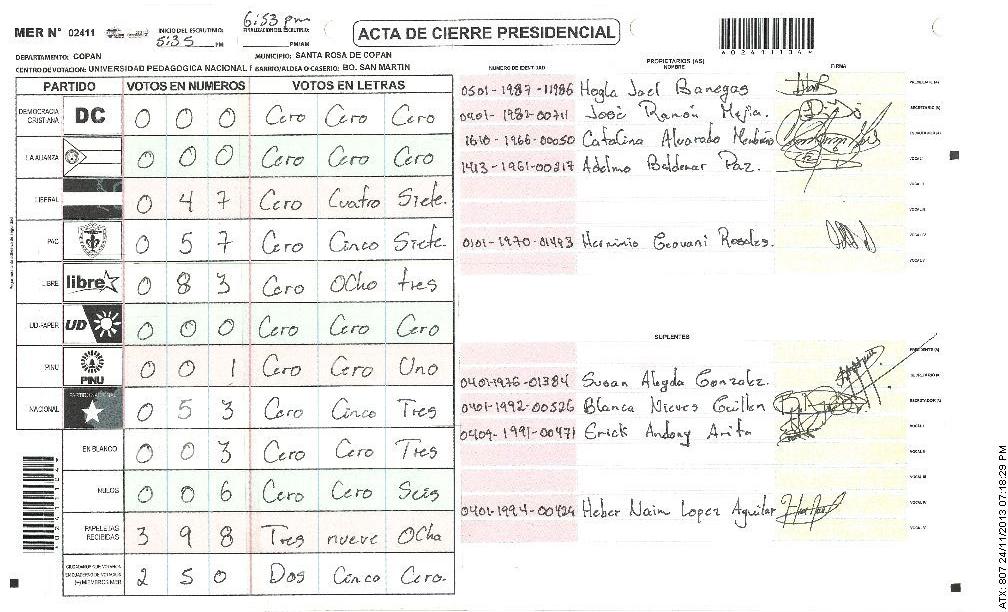 6:53 pm
MER N° 02411 INICIO DEL ESCRUTINIO: 5:35 PM FINALIZACION DEL ESCRUTINIO: PM/AM
ACTA DE CIERRE PRESIDENCIAL
DEPARTAMENTO: COPAN MUNICIPIO: SANTA ROSA DE COPAN
CENTRO DE VOTACION: UNIVERSIDAD PEDAGOGICA NACIONAL F BARRIO/ALDEA O CASERIO: BO. SAN MARTIN
PARTIDO VOTOS EN NUMEROS VOTOS EN LETRAS
DEMOCRACIA CRISTIANA DC 0 0 0 Cero Cero Cero
LA ALIANZA 0 0 0 Cero Cero Cero
LIBERAL 0 4 7 Cero Cuatro Siete.
PAC 0 5 7 Cero Cinco Siete.
LIBRE libre 0 8 3 Cero OCho tres
UD-FAPER UD 0 0 0 Cero Cero Cero
PINU PINU 0 0 1 Cero Cero Uno
NACIONAL PARTIDO NACIONAL 0 5 3 Cero Cinco Tres
EN BLANCO 0 0 3 Cero Cero Tres
NULOS 0 0 6 Cero Cero Seis
PAPELETAS RECIBIDAS 3 9 8 Tres nueve OCho
2 5 0 Dos Cinco Cero.
PROPIETARIOS (AS)
NUMERO DE IDENTIDAD NOMBRE FIRMA
0501-1987-11986 Hogla Joel Banegas
0401-1982-00711 José Ramón Mejia.
1610-1966-00050 Catalina Alvarado
1413-1961-00217 Adelmo Baldemar Paz.
0101-1970-01493 Herminio Geovani Rosales.
SUPLENTES
0401-1976-01384 Susan Aleyda Gonzalez.
0401-1992-00526 Blanca Nieves Guillen
0409-1991-00471 Erick Andony Arita
0401-1994-00424 Heber Nain Lopez Aguilar
ATX: 807 24/11/2013 07:18:29 PM